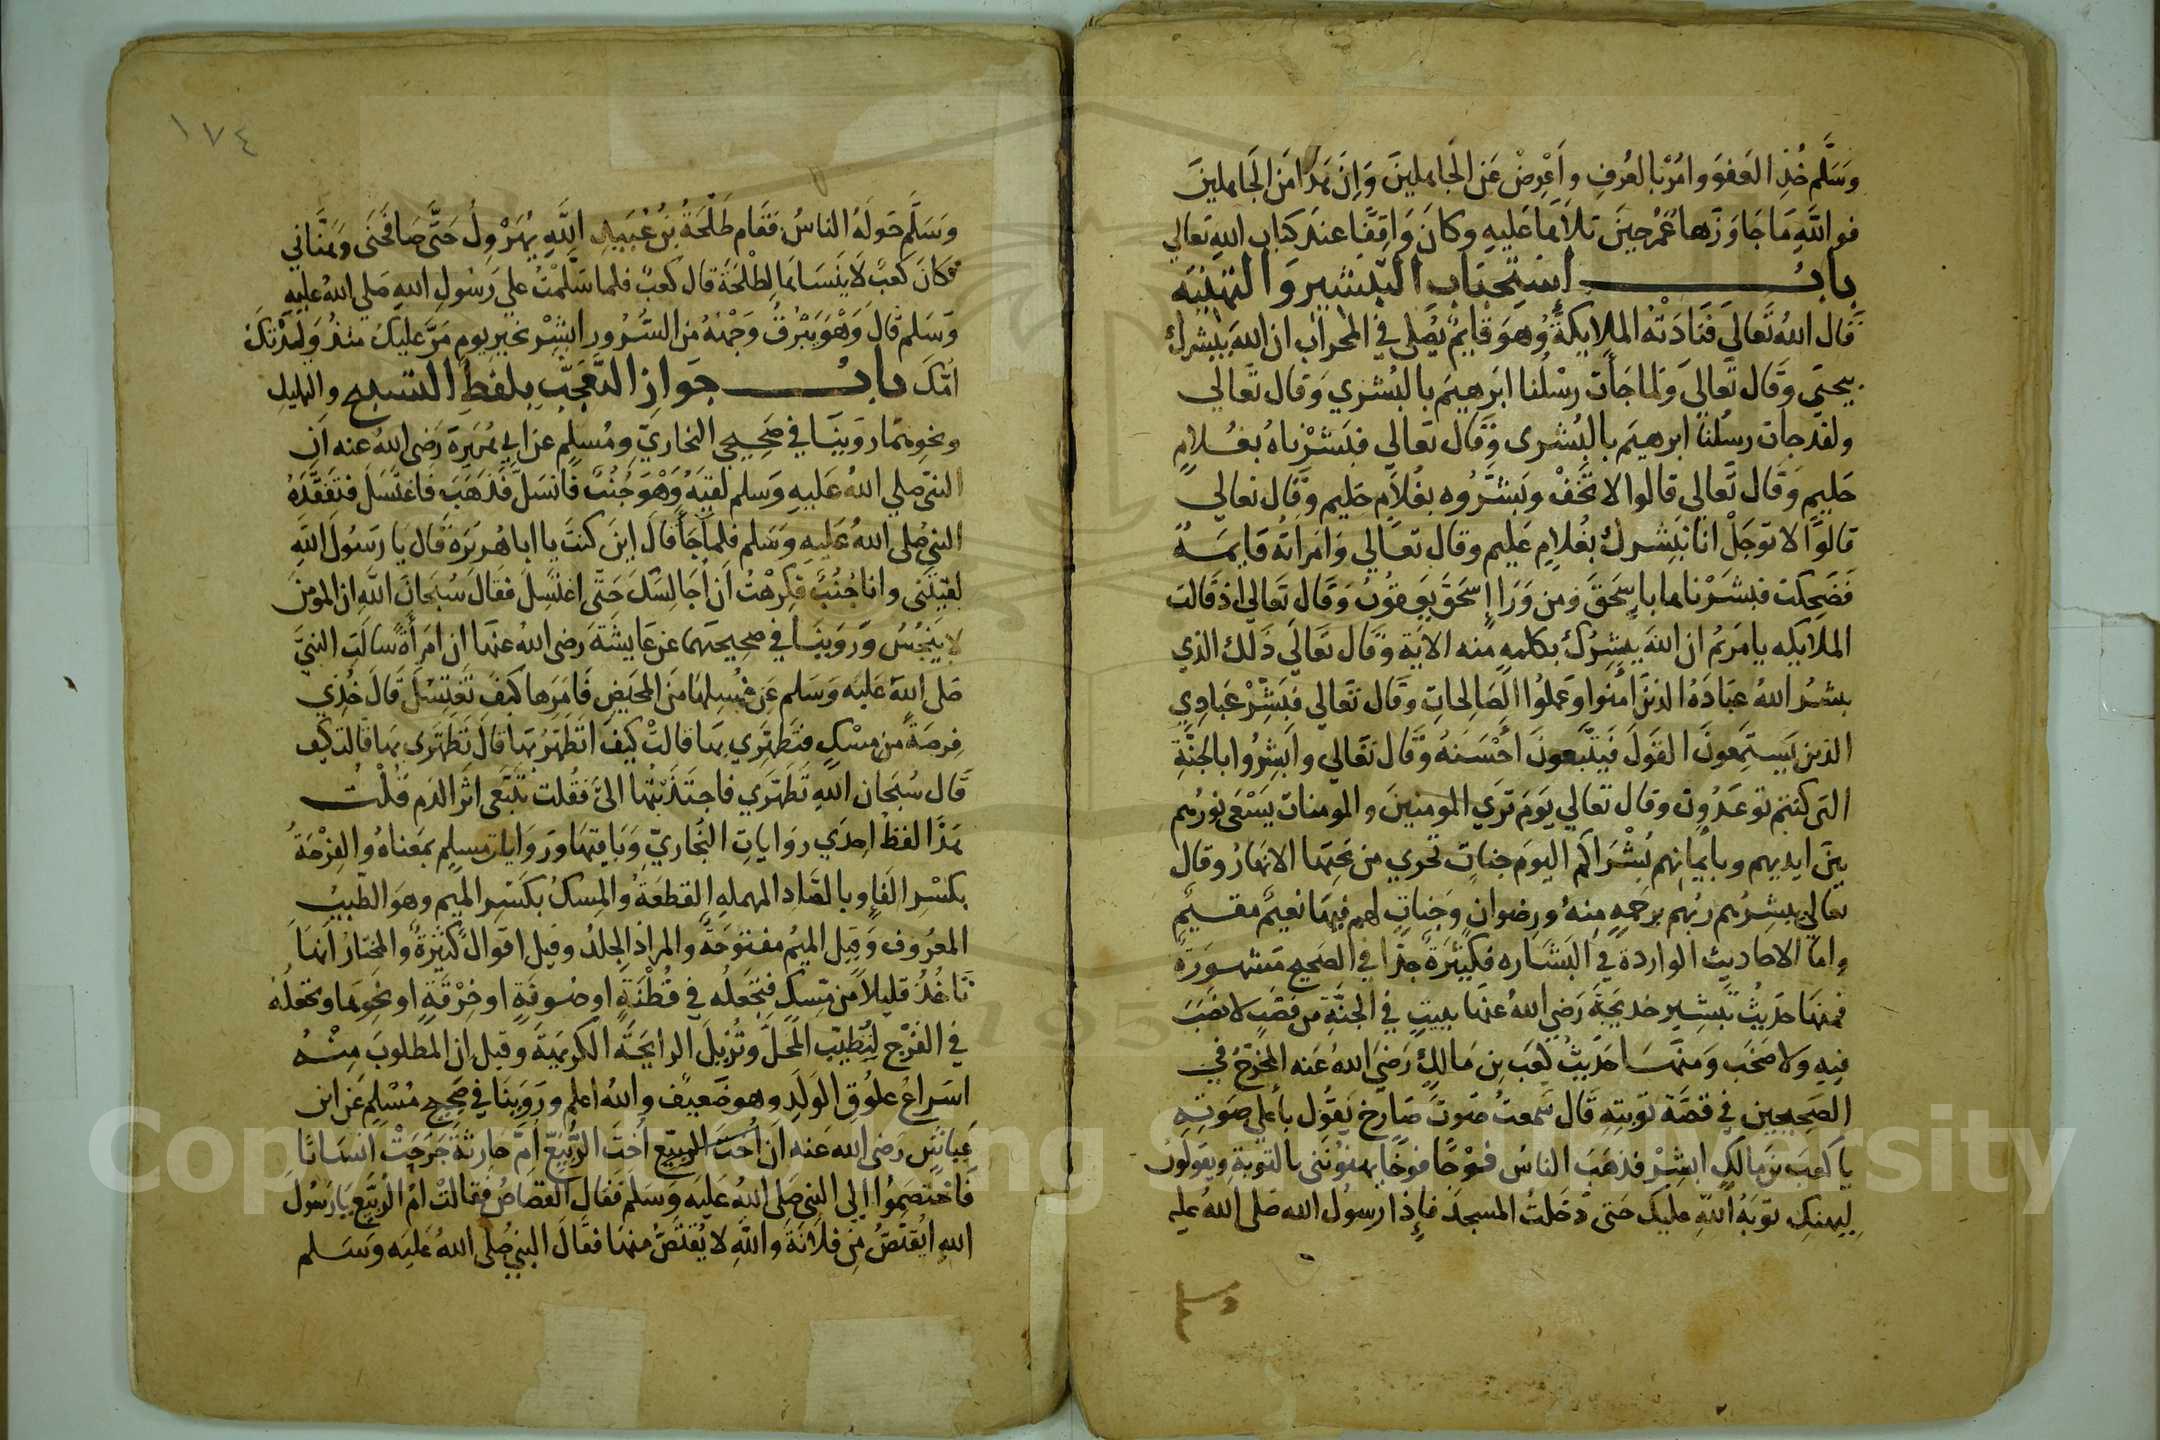 وَسَلَّم خُذِ العَفوَ وامُرْ بالعُرفِ وأَعْرِضْ عَنِ الجَاهلينَ وَإِنَّ هَذا مِنَ الجَاهلينَ
فواللَّهِ مَا جَاوَزَها عُمَرُ حِينَ تلاَهَا عَليهِ وكانَ وَاقِفًا عندَ كِتَابِ اللهِ تعَالي
بابُ استِحبَابِ التَّبشيرِ وَالتهنِئَة
قَال اللهُ تَعالَي فَنَادَتْهُ الملايكةُ وهوَ قايمٌ يُصَلي في المحراب ان اللهَ يبشرك
بيحيَى وَقَال تَعالَي وَلما جَأت رسْلُنا ابرَهيمَ بالبُشري وَقال تَعَالَي
ولقد جات رسلنا ابرهيمَ بالبُشرى وَقَال تعَالي فبَشرْناهُ بغُلامٍ
حَليمٍ وَقَال تَعالي قالوا لا تخَفْ وبَشَّرُوه بغُلاَمٍ حَليم وَقَال تعالي
قالوا لا توجَلْ انا نُبَشِرك بغُلامٍ عَليم وقال تعَالي وَامرَاتُه قَايمَةٌ
فَضَحِكت فبشَرْناها باسِحَقَ ومن وَرَا إسحَقَ يعقوُبَ وَقَال تَعَالي اذ قَالت
الملايكه يا مَريمُ ان اللهَ يبشِرُكِ بكلمهٍ منه الايَة وَقَال تعَالَي ذَلك الذي
يبشرُ اللهُ عبَادَهُ الذينَ امَنوا وَعملوُا الصَالحاتِ وقَال تعَالي فبَشِّرْ عبَادِي
الذين يَستمِعونَ القَولَ فيَتَّبعونَ احْسَنهُ وَقَال تعَالي وابشِرُوا بالجَنَّةِ
التى كنتم توعَدُون وقال تعالي يوَمَ تَرَي المومنينَ والمومنات يَسْعَى نورُهم
بينَ ايديهم وبأيمانِهم بُشْرَاكم اليومَ جناتٌ تجري من تحتِها الانهارُ وقال
تعالي يبشِرُهم ربُهم برحمهٍ مِنهُ ورِضوانٍ وَجناتٍ لهم فيهَا نَعيمٌ مقيمٌ
وامَّا الاحاديث الواردة في البَشَاره فكثيرَةٌ جدًّا في الصَحيح مَشهورَةٌ
فمنهَا حَديثُ تبشِير خديجَةَ رَضِي اللهُ عنهَا ببيتٍ في الجنَّةِ من قصَبٍ لا نصَبَ
فيهِ ولا صَخَب وَمنهَا حَديثُ كعَب بن مَالكٍ رَضيَ اللهُ عَنه المخَرَّجُ في
الصَحيحين في قصَّة تَوبتِهِ قَال سَمعتُ صَوتَ صَارخٍ يَقُول بأَعلي صَوتهِ
يا كعبَ بنَ مالكٍ ابشِرْ فذهَبَ الناسُ فوْجًا فوجًا يهنوُنَنى بالتوبةِ ويَقولونَ
لِيَهنِكَ توبَةُ اللهِ عليك حَتى دَخَلتُ المسجدَ فإذا رسُولُ الله صَلى اللهُ عليه
١٧٤
وَسَلَّم حَولَهُ الناسُ فقَام طَلْحَةُ بنُ عُبَيدِ اللَّهِ يُهرْوِلُ حَتَّى صَافحَنَى وَهَنَّاني
فكانَ كعبٌ لا ينسَاهَا لِطلحَةَ قال كَعبٌ فلما سَلَّمْتُ علي رَسُولِ اللهِ صَلي اللهُ عليه
وَسَلم قَال وَهْوَ يَبْرُقُ وَجْهُهُ منَ السُّرُورِ ابشِرْ بخيرِ يومٍ مَرَّ عليكَ منذُ وَلَدْتكَ
امُّك بابُ جَوازِ التَّعَجُّبِ بلفظِ التسبيح والتهليلِ
ونحوِهمَا روَينَا في صَحيحي البخاريِّ ومُسلِمٍ عن ابي هُريرَة رَضى اللهُ عنه ان
النبىّ صَلي اللهُ عَليهِ وَسلم لقيَهُ وَهْوَ جُنُبٌ فَانسَلَّ فَذَهَبَ فَاغتَسَلَ فتَفَقَّدَهُ
النبيّ صَلى اللهُ عَليهِ وَسَلم فلمَّا جَأَ قَالَ اينَ كنتَ يا ابا هُريرَة قَال يا رَسُولَ اللَّهِ
لقيتَنى وانا جُنُبٌ فكِرهْتُ ان أُجَالِسَكَ حَتَّى اغتَسِلَ فقَالَ سُبحَانَ اللَّهِ ان المومنَ
لا ينجُسُ وَروَينَا في صحيحيهما عن عَايشَة رَضى اللهُ عنهَا ان امرأَةً سَالَتِ النبيَّ
صَلى اللهُ عَليه وَسَلم عَن غُسلِهَا منَ المحَيضِ فَامَرَها كيفَ تَغتَسِلُ قَالَ خُذِي
فِرصَةً مِن مِسْكٍ فتَطهَّرِي بهَا قالتْ كيفَ اتطهَّرُ بهَا قالَ تَطهَّرِي بهَا قَالت كيف
قَال سُبحَان اللهِ تَطَهَّري فاجتَذَبْتُهَا الىَّ فَقُلتُ تَتَبَّعى اثَر الدَم قُلْتُ
هَذا لفظُ احدي روَاياتِ البُخاريّ وَبَاقيهَا ورِوَاياتِ مسلمٍ بمَعناهُ والفِرْصَةُ
بكسْرِ الفَاءِ وبالصَادِ المهملهِ القطعَةُ والمِسكُ بكَسْرِ المِيم وهوَ الطّيبُ
المعرُوف وَقيل الميمُ مفتوحَةٌ والمراد الجِلدُ وقيل اقوالٌ كثيرَةٌ والمختارُ انهَا
تَاخُذُ قليلاً من مِسْكٍ فتجعَلُه في قُطْنَةٍ او صُوفةٍ او خِرْقَةٍ او نحوِهَا وتجعَلُهُ
في الفَرْج لتُطَيّبَ المحَلَّ وتُزيلَ الرايحَةَ الكَرِيهَةَ وقيل ان المطلوبَ مِنْهُ
اسرَاعُ علوُقِ الوَلَدِ وهوَ ضَعيفٌ واللهُ اعلم ورَوَينَا في صَحيحِ مُسْلِمٍ عَن انس
رضى الله عَنه ان اُختَ الرُّبيّع أُمَّ حَارثَةَ جَرَحَتْ انسَانًا
فَاختصَموُا الي النبى صَلى اللهُ عَليه وسَلم فقَالَ القصَاصُ فقَالتْ امُّ الرُّبيّع يَا رَسُولَ
اللهِ ايُقتَصُّ مِن فلاَنَةَ وَاللَّهِ لا يُقتَصُّ منهَا فقَالَ النبيّ صَلى اللهُ عَليه وَسَلم
Copyright © King Saud University